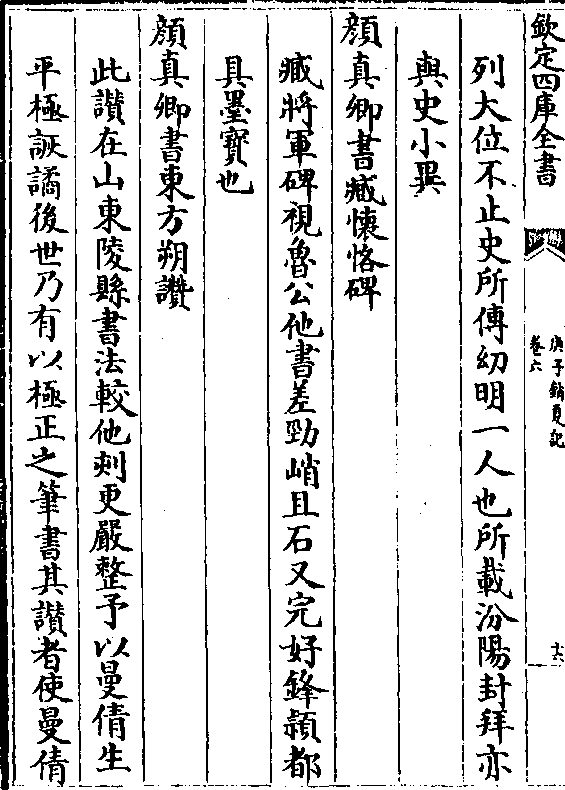 欽定四庫全書
庚子銷夏記
卷六
十六
列大位不止史所傳幼明一人也所載汾陽封拜亦
與史小異
顏真卿書臧懷恪碑
臧將軍碑視魯公他書差勁峭且石又完好鋒頴都
具墨寳也
顏真卿書東方朔讚
此讃在山東陵縣書法較他刻更嚴整予以曼倩生
平極詼譎後世乃有以極正之筆書其讃者使曼倩